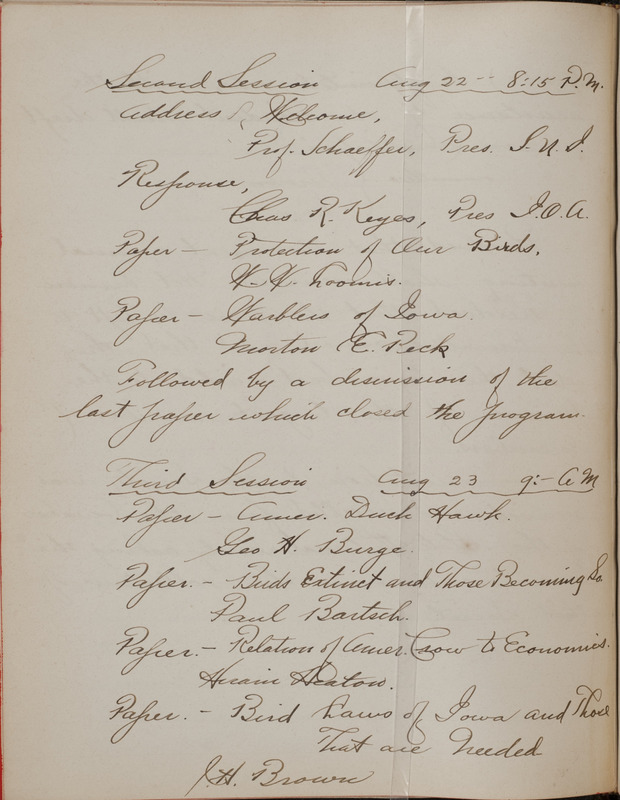 Second Session Aug 22 - 8:15 P.M.
Address of Welcome,
Prof. Schaeffer, Pres. S.U.I.
Response,
Chas R. Keyes, Pres I.O.A.
Paper - Protection of Our Birds,
W. W. Loomis.
Paper - Warblers of Iowa.
Morton E. Peck
Followed by a discussion of the
last paper which closed the program.
Third Session Aug 23 9:- A M
Paper - Amer. Duck Hawk.
Geo H. Burge.
Paper. - Birds Extinct and Those Becoming So.
Paul Bartsch.
Paper. - Relation of Amer. Crow to Economics.
Hiram Heaton.
Paper. - Bird Laws of Iowa and Those
That are Needed
J. H. Brown